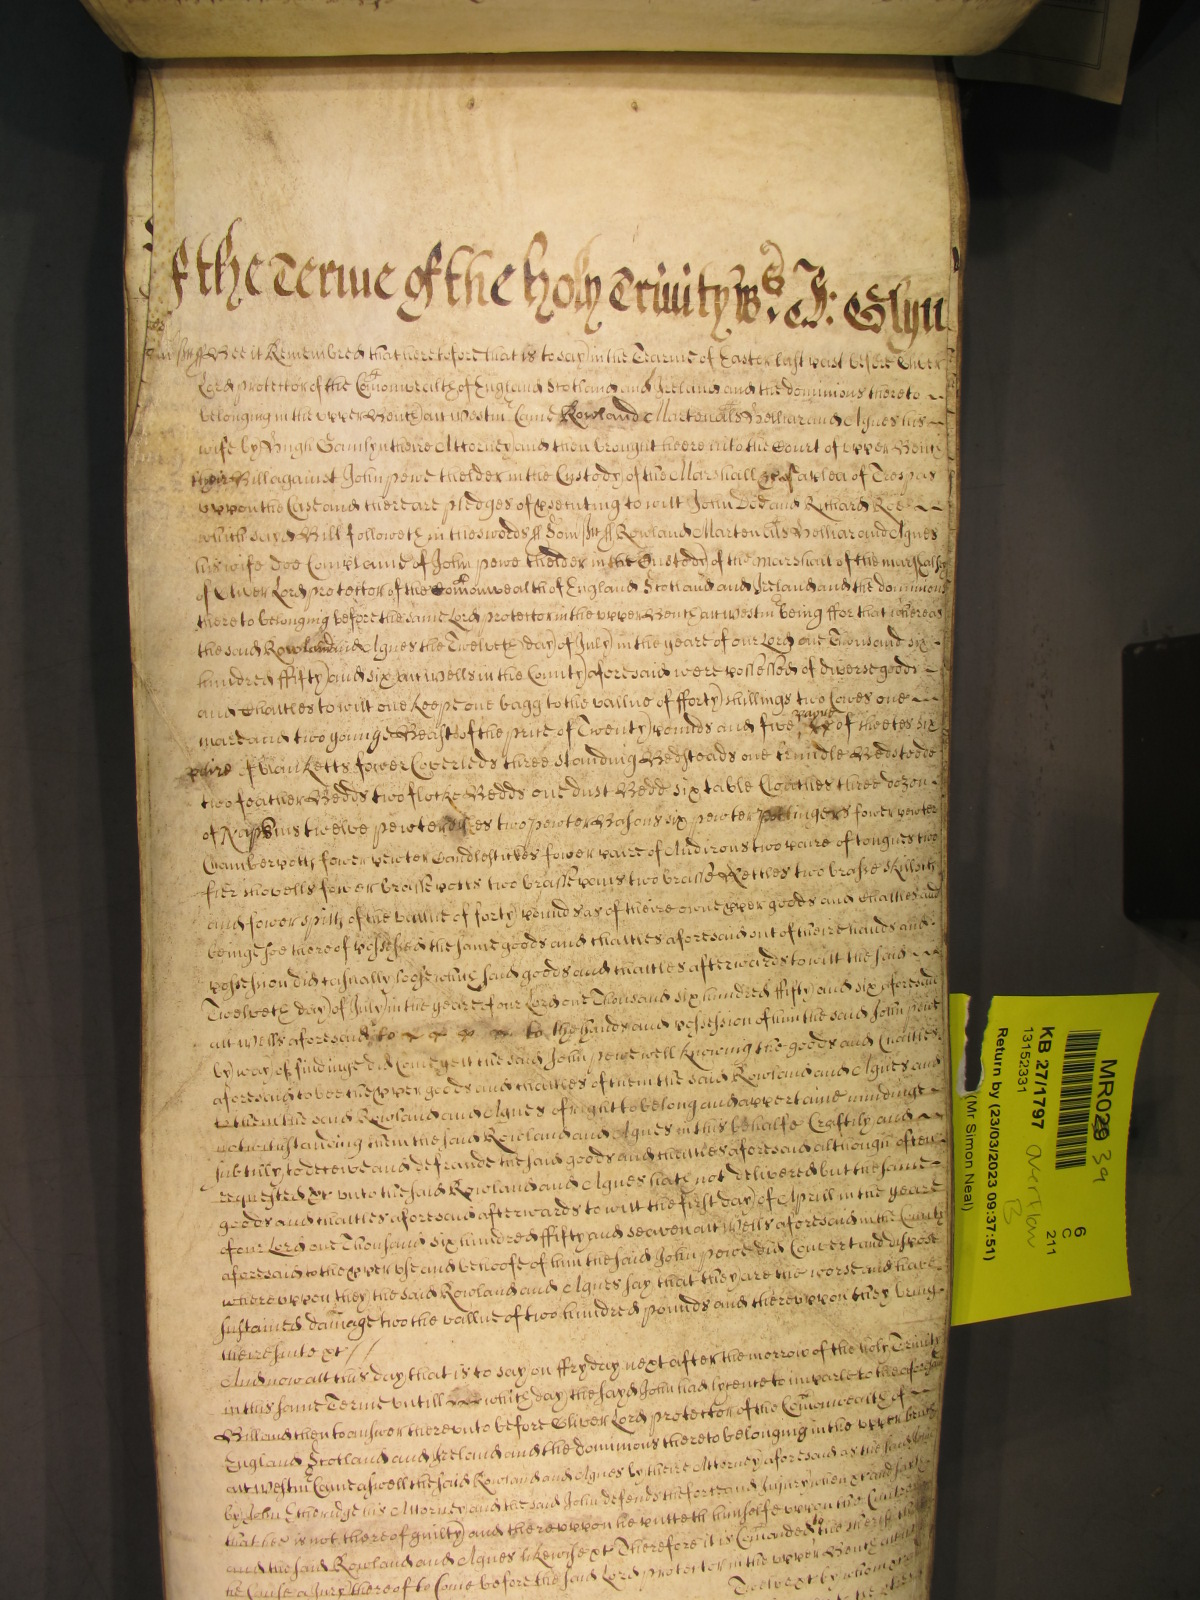 f the Terme of the holy Trinity Ws. J: Glyn
Bee it Remembred that heretofore that is to say in the Tearme of Easter last past before Oliver
Lord protector of the Comonwealth of England Scotland and Ireland and the dominions thereto
belonging in the upper Bench att Westm Came Rowland Marten als Helliar and Agnes his
wife by Hugh theire Attorney and then brought heere into the Court of upper Bench
their Bill against John pewe thelder in the Custody of the Marshall &c of a plea of Trespas
uppon the Case and there are pledges of prsecuting to witt John Doe and Richard Roe
which sayd Bill followeth in these words ss Som ss Rowland Marten als Helliar and Agnes
his wife doe Complaine of John pewe thelder in the Custody of the marshall of the marshalsy
of Oliver Lord protector of the Comonwealth of England Scotland and Ireland and the dominions
there to belonging before the same Lord protector in the upper Bench att Westm being ffor that whereas
the said Rowland and Agnes the Twelveth day of July in the yeare of our Lord one Thousand six
hundred ffifty and six att Wells in the County aforesaid were possessed of diverse goods
and Chattles to witt one bagg to the vallue of fforty shillings two Cowes one
mare and two younge Beasts of the price of Twenty pounds and five paire of sheetes six
paire of blanketts fower Coverleds three standing Bedsteads one trundle Bedstedd
two feather Bedds two flocke Bedds one dust Bedd six table Cloathes three dozen
of Napkins twelve pewter dishes two pewter Basons six pewter pottingers fower pewter
Chamberpotts fower pewter Candlestickes fower paire of Andirons two paire of tongues two
fier shovells fower brasse potts two brasse pans two brasse Kettles two brasse skilletts
and fower spitts of the vallue of forty pounds as of theire owne pper goods and chattles and
beinge soe thereof possessed the same goods and chattles aforesaid out of theire hands and
possession did casually loose which said goods and chattles afterwards to witt the said
Twelveth day of July in the yeare of our Lord one Thousand six hundred ffifty and six aforesaid
att Wells aforesaid to the hands and possession of him the said John pewe
by way of findinge did Come yett the said John pewe well knowing the goods and Chattles
aforesaid to bee the pper goods and chattles of them the said Rowland and Agnes and
to them the said Rowland and Agnes of right to belong and appertaine mindinge
notwithstanding them the said Rowland and Agnes in this behalfe Craftily and
subtilly to deceive and defraude the said goods and chattles aforesaid although often
requested &c unto the said Rowland and Agnes hath not delivered but the same
goods and chattles aforesaid afterwards to witt the first day of Aprill in the yeare
of our Lord one Thousand six hundred ffifty and seaven att Wells aforesaid in the County
aforesaid to the pper use and behoofe of him the said John pewe did Convert and dispose
whereuppon they the said Rowland and Agnes say that they are the worse and have
sustained damage to the vallue of two hundred pounds and thereuppon they bring
theire suite &c
And now att this day that is to say on ffryday next after the morrow of the holy Trinity
in this same Terme untill which day the sayd John had lycence to imparle to the aforesaid
Bill and then to answer thereunto before Oliver Lord protector of the Comonwealth of
England Scotland and Ireland and the dominions thereto belonging in the upper bench
att Westm Came aswell the said Rowland and Agnes by theire Attorney aforesaid as the said John
by John Etheridge his Attorney and the said John defends the force and Injury when &c and saith
that hee is not thereof guilty and thereuppon he putteth himselfe uppon the Cuntry
and the said Rowland and Agnes likewise &c Therefore it is Comanded the sheriffe that
he Cause a Jury thereof to Come before the said Lord protector in the upper Bench
Twelve &c by whom
MR029 39
KB 27/1797
overflow
B
13152331
6
C
211
Return by (23/03/2023 09:37:51)
(Mr Simon Neal)